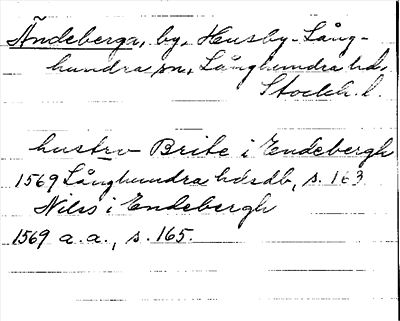 Ändeberga, by, Husby-Lång-
hundra sn, Långhundra hd,
Stockh. l.
hustrv Brite i Endebergh
1569 Långhundra hdsdb, s. 163
Nilss i Endebergh
1569 a.a., s. 165.